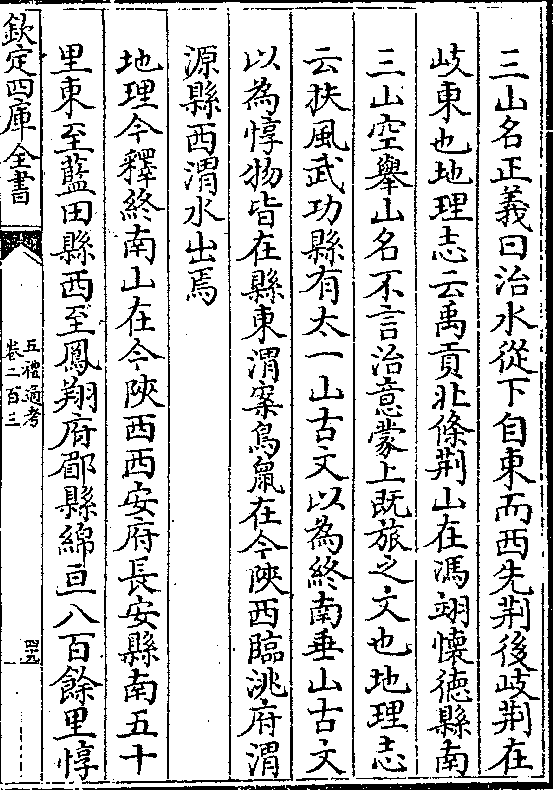 三山名正義曰治水從下自東而西先荆後岐荆在
岐東也地理志云禹貢北條荆山在馮翊懷德縣南
三山空舉山名不言治意蒙上既旅之文也地理志
云扶風武功縣有太一山古文以為終南垂山古文
以為惇物皆在縣東渭案鳥䑕在今陜西臨洮府渭
源縣西渭水出焉
地理今釋終南山在今陜西西安府長安縣南五十
里東至藍田縣西至鳳翔府郿縣綿亘八百餘里惇
欽定四庫全書
五禮通考
卷二百三
四十九